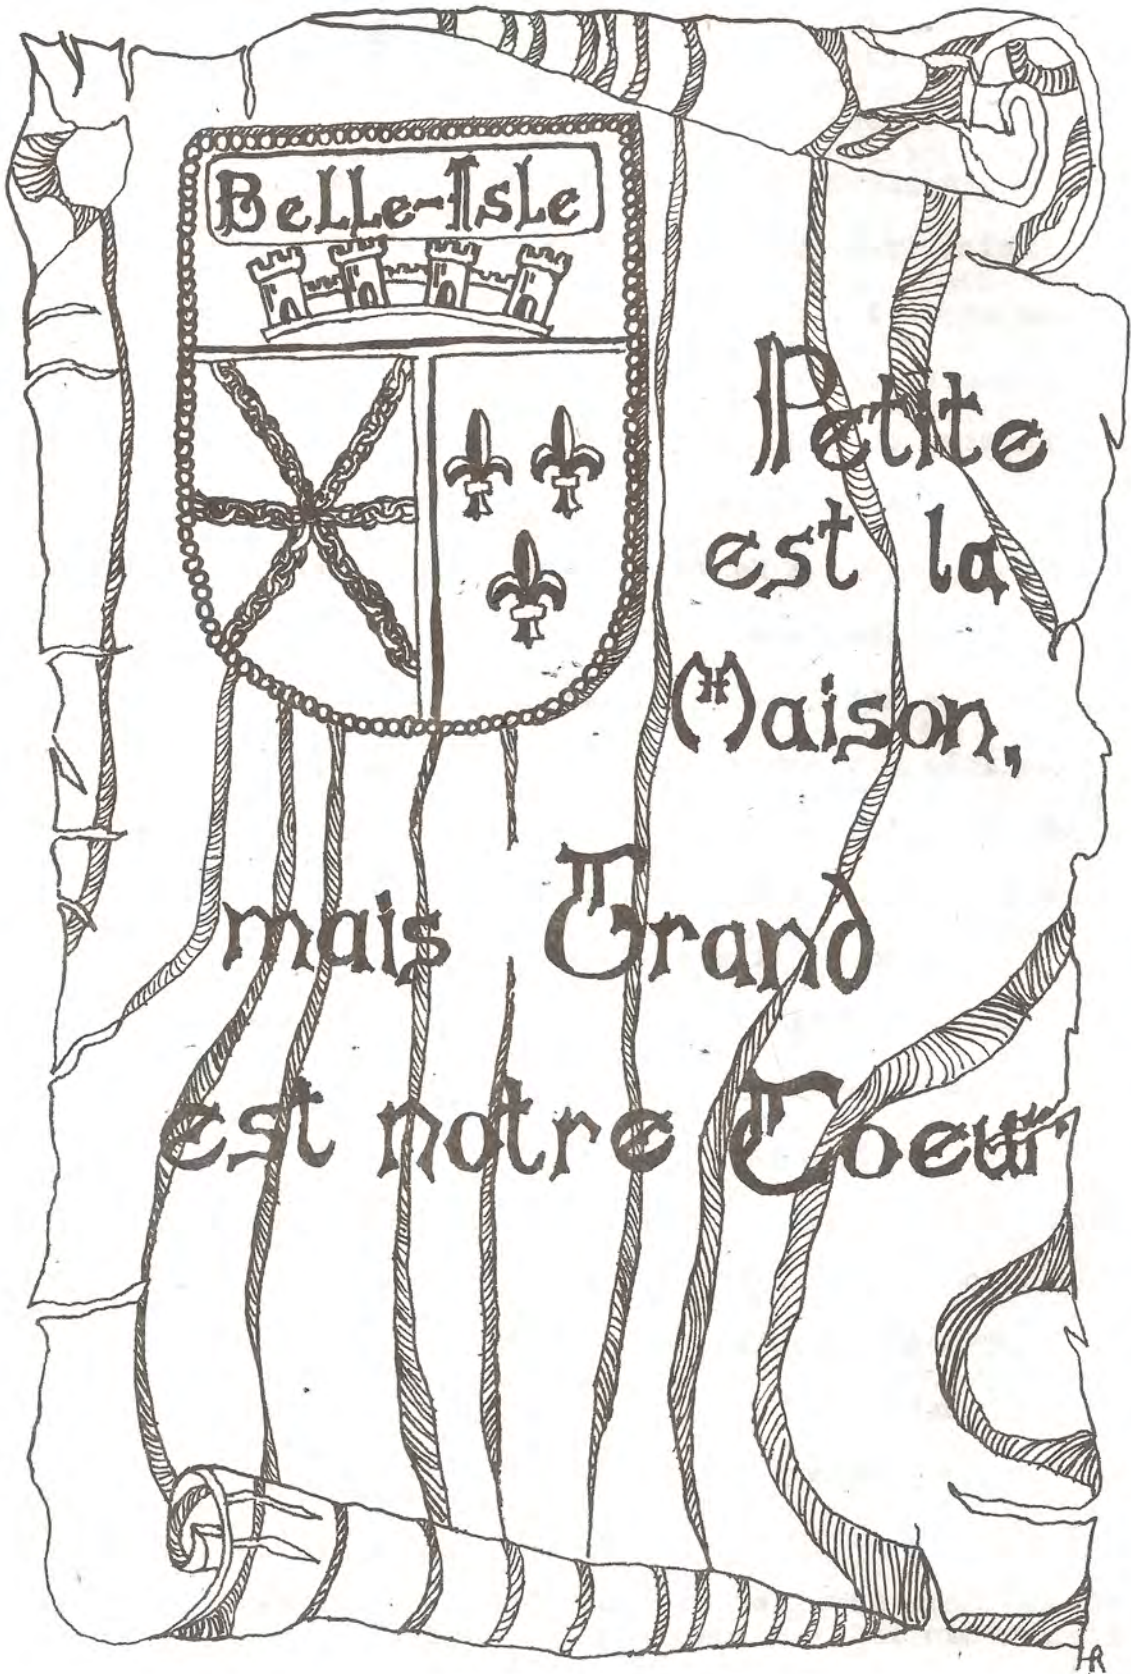 Belle-Isle
Petite
est la
Maison,
mais Grand
est notre Coeur
HR